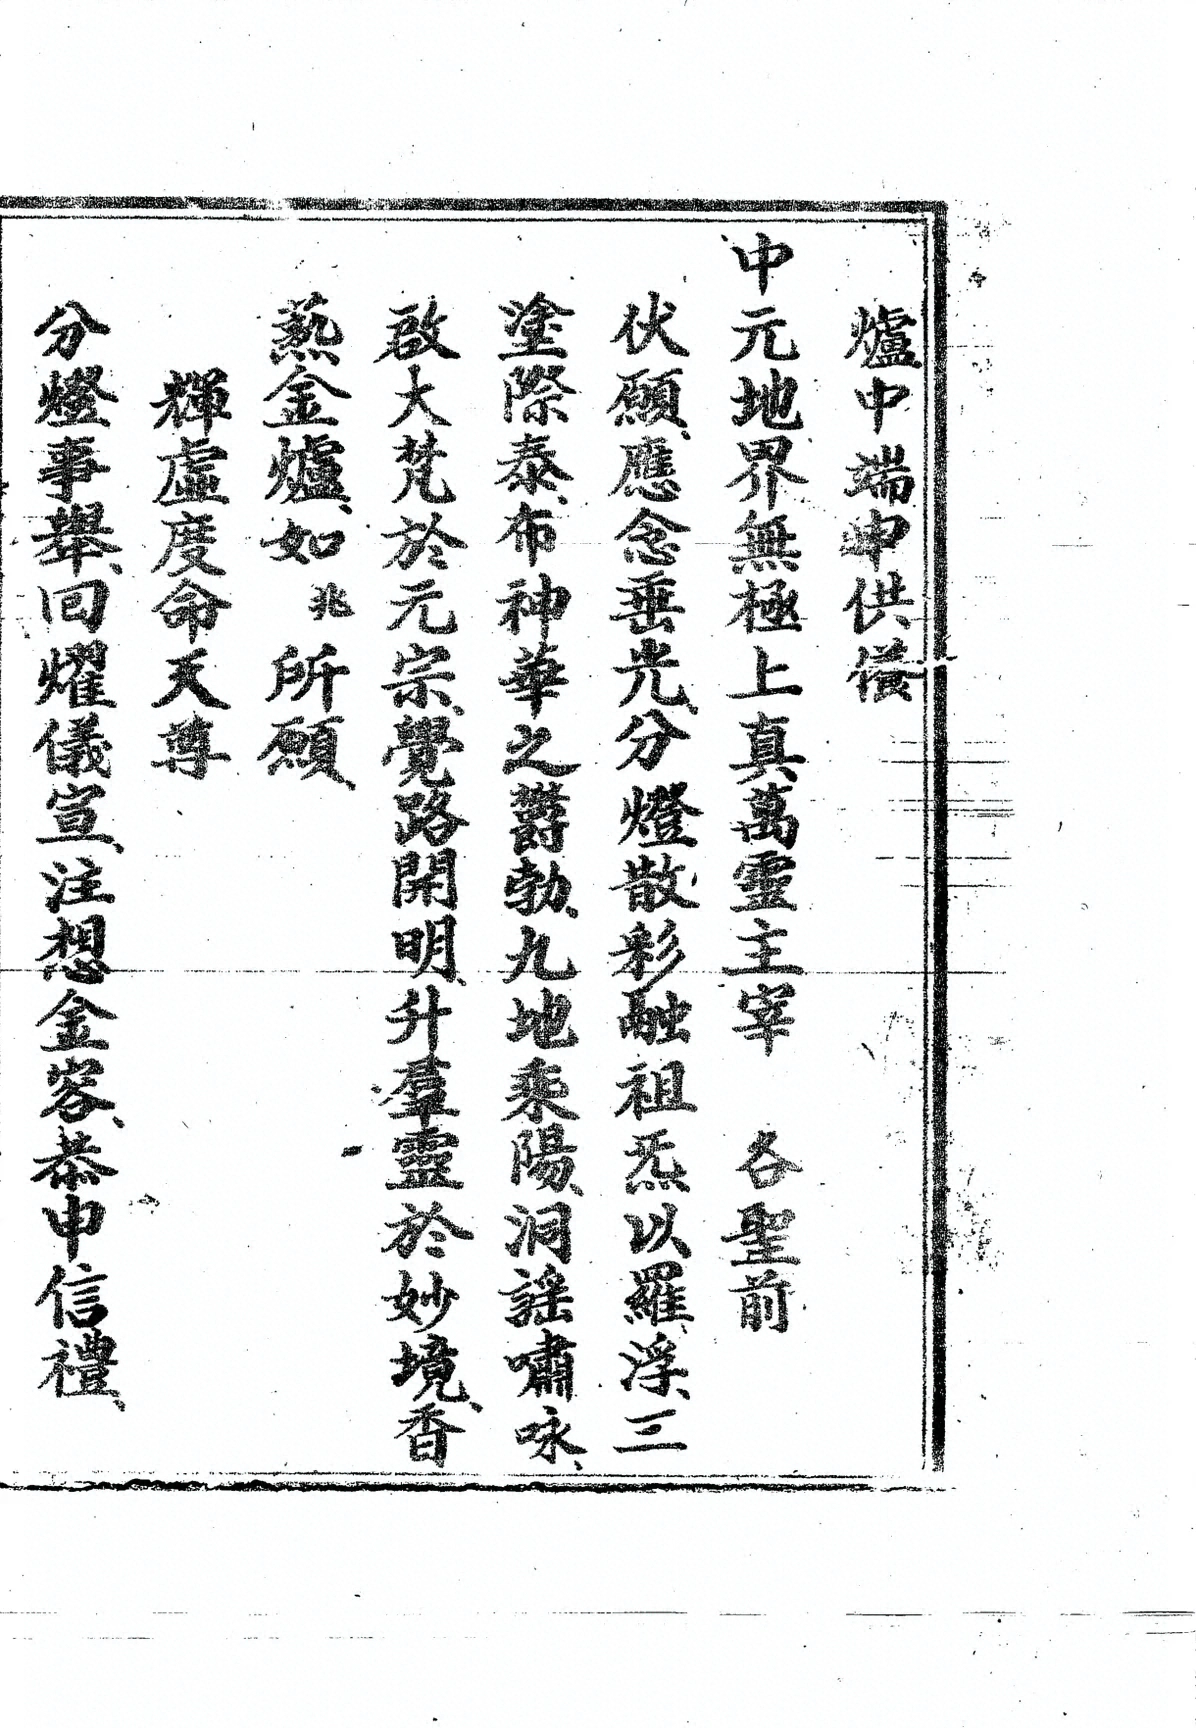 爐中端申供養
中元地界無極上真萬靈主宰　各聖前
伏願、應念垂光、分燈散彩、融祖炁以羅浮、三
塗際泰、布神華之欝勃、九地乘陽、洞謠嘯咏、
啟大梵於元宗、覺路開明、升羣靈於妙境、香
爇金爐、如兆所願、
輝虛度命天尊
分燈事舉、回耀儀宣、注想金容、恭申信禮、